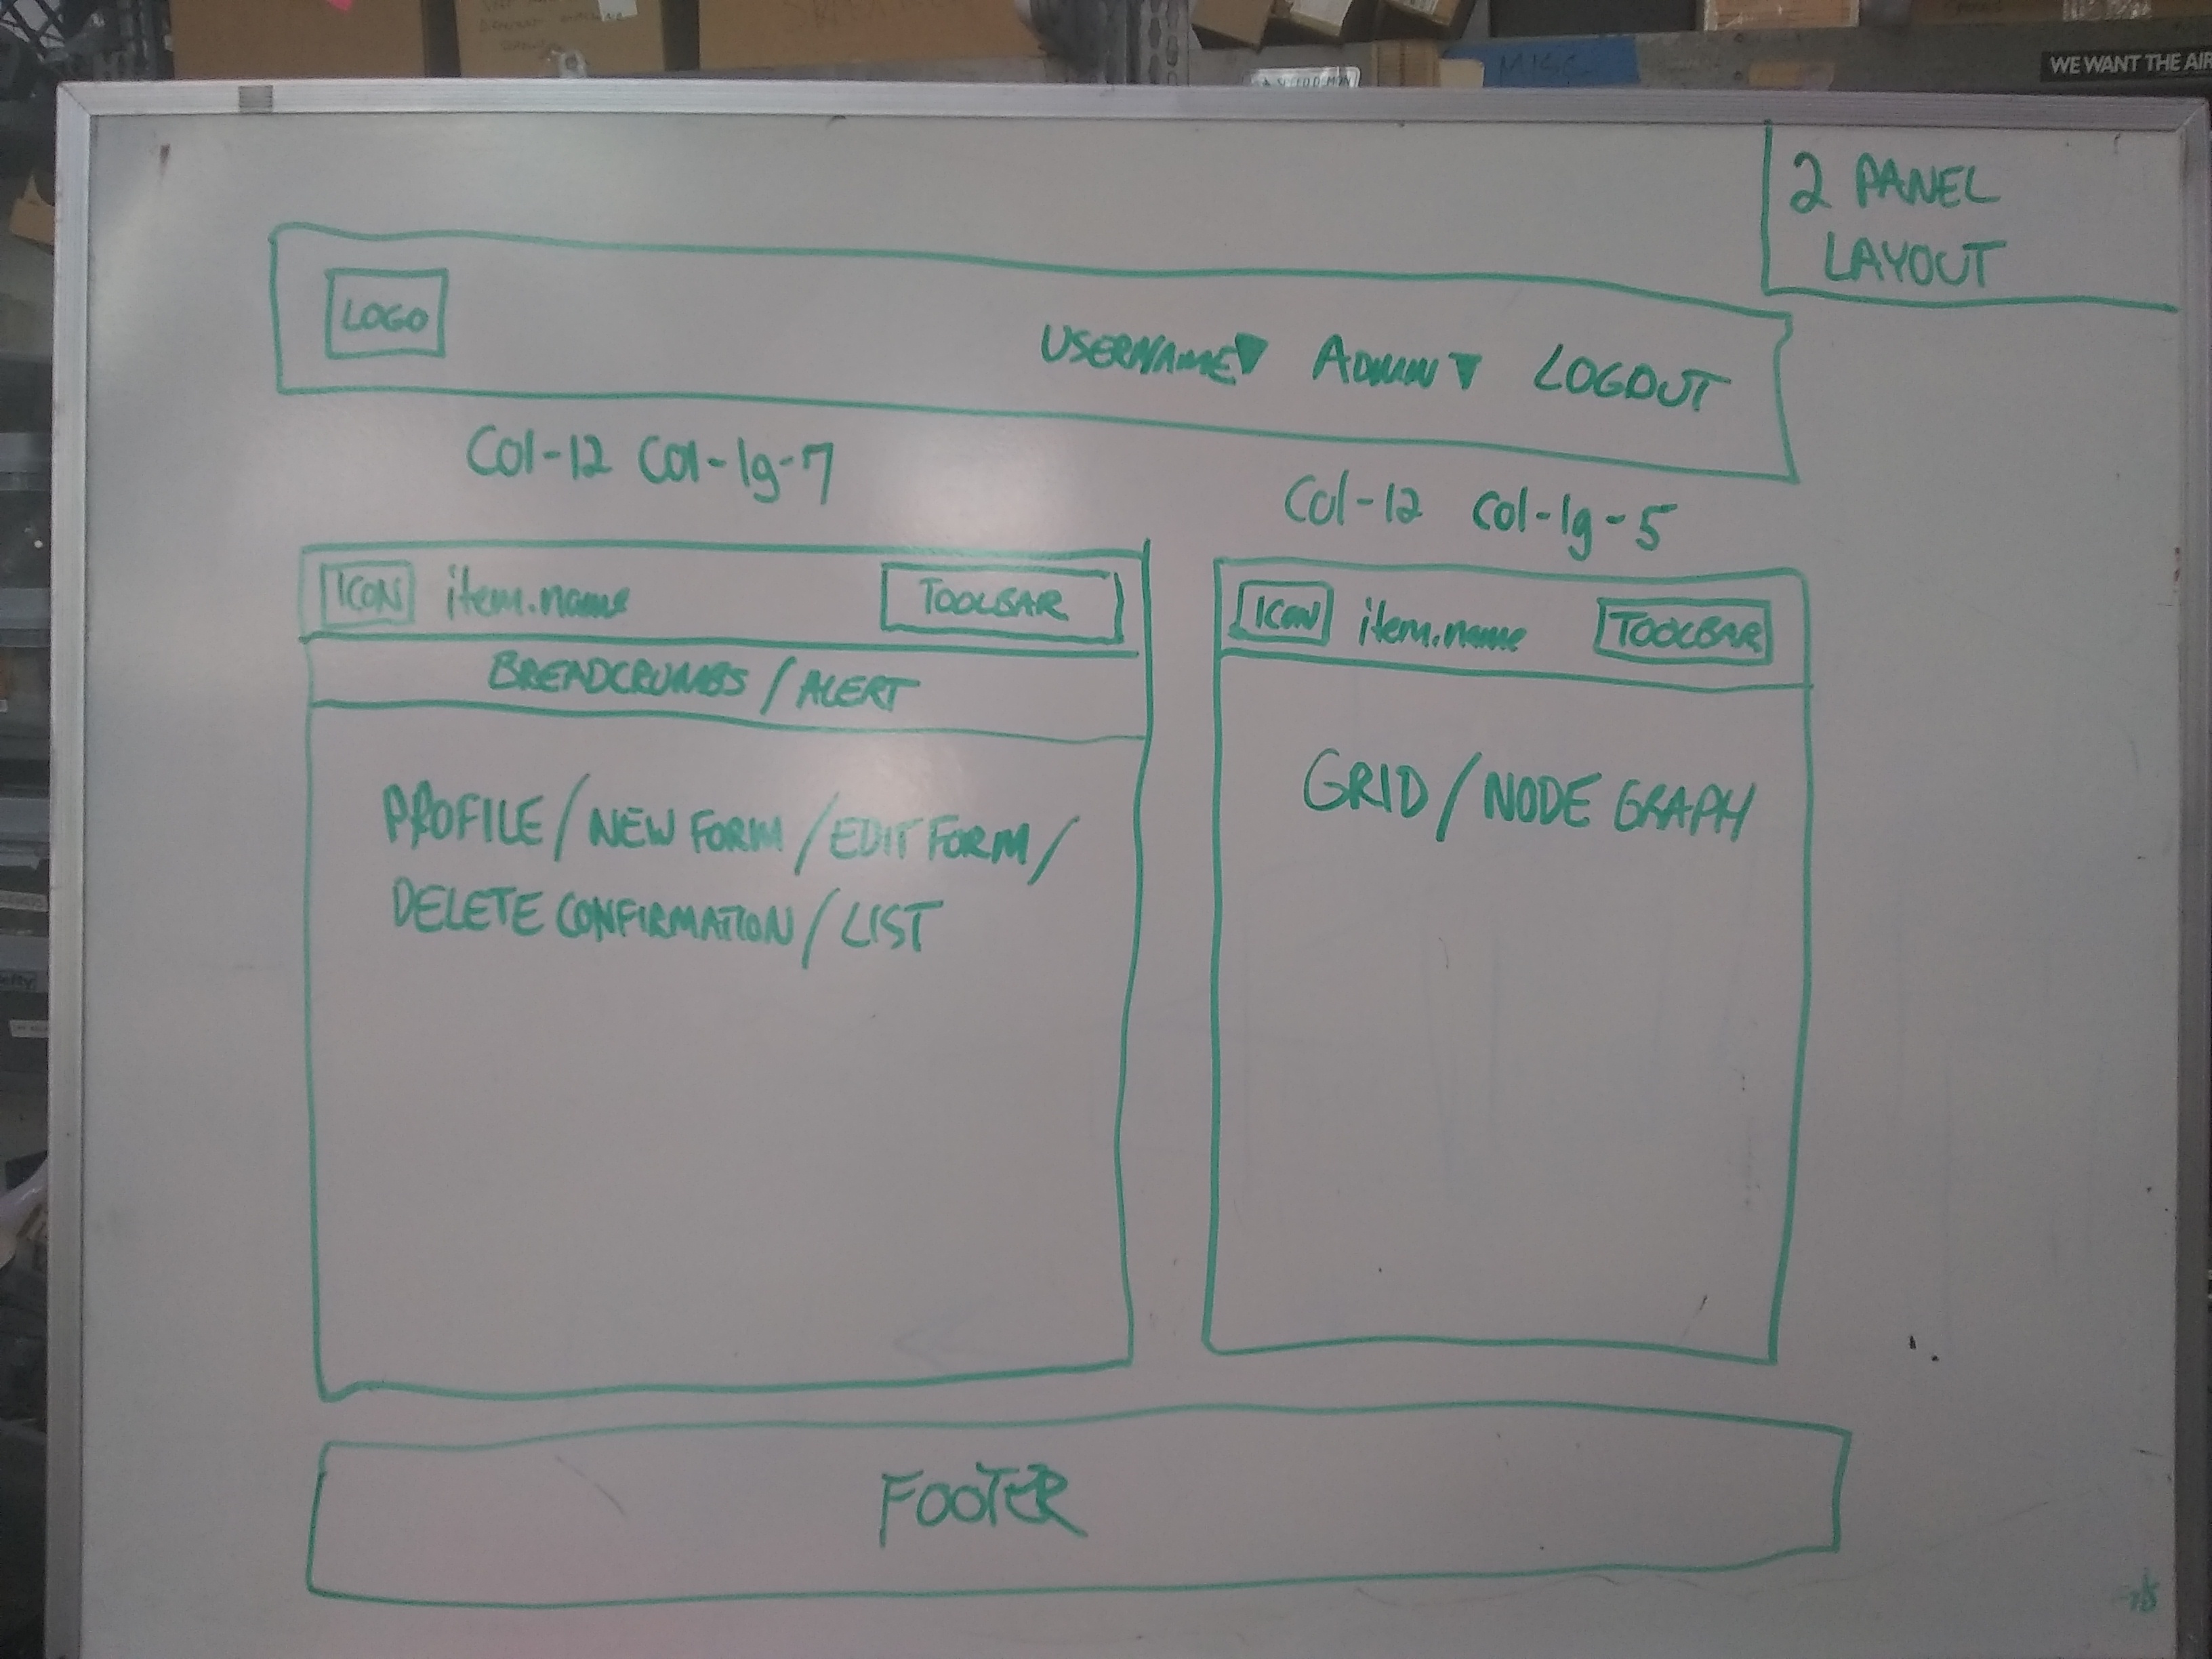 MISC
WE WANT THE AIR
2 PANEL
LAYOUT
LOGO
USERNAME▼ ADMIN▼ LOGOUT
Col-12 Col-lg-7
Col-12 Col-lg-5
ICON item.name TOOLBAR
BREADCRUMBS / ALERT
PROFILE / NEW FORM / EDIT FORM /
DELETE CONFIRMATION / LIST
ICON item.name TOOLBAR
GRID / NODE GRAPH
FOOTER